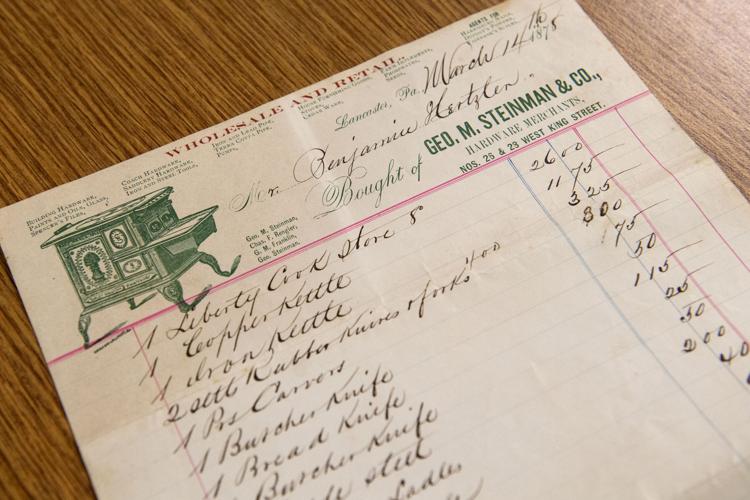 WHOLESALE AND RETAIL
AGENTS FOR
BUILDING HARDWARE,
PAINTS AND OILS, GLASS,
SPENCER'S FILES,
COACH HARDWARE,
SADDLERY HARDWARE,
IRON AND STEEL, TOOLS,
IRON AND LEAD PIPE,
TERRA COTTA PIPE,
PUMPS,
HOUSE FURNISHING GOODS,
CEDAR WARE,
FARM IMPLEMENTS,
PHOSPHATES,
SEEDS,
Lancaster, Pa. March 14th 1878
Mr. Benjamin Hertzler
Bought of GEO. M. STEINMAN & CO.,
HARDWARE MERCHANTS,
NOS. 25 & 23 WEST KING STREET.
Geo. M. Steinman,
Chas. F. Rengier,
G. M. Franklin,
Geo. Steinman.
1 Liberty Cook Stove 8 2600
1 Copper Kettle 11 75
1 Iron Kettle 325
2 Setts Rubber Knives & forks 400 800
1 Prs Carvors 75
1 Butcher Knife 50
1 Bread Knife 115
1 Butcher Knife 25
steel 50
Ladles 200
40